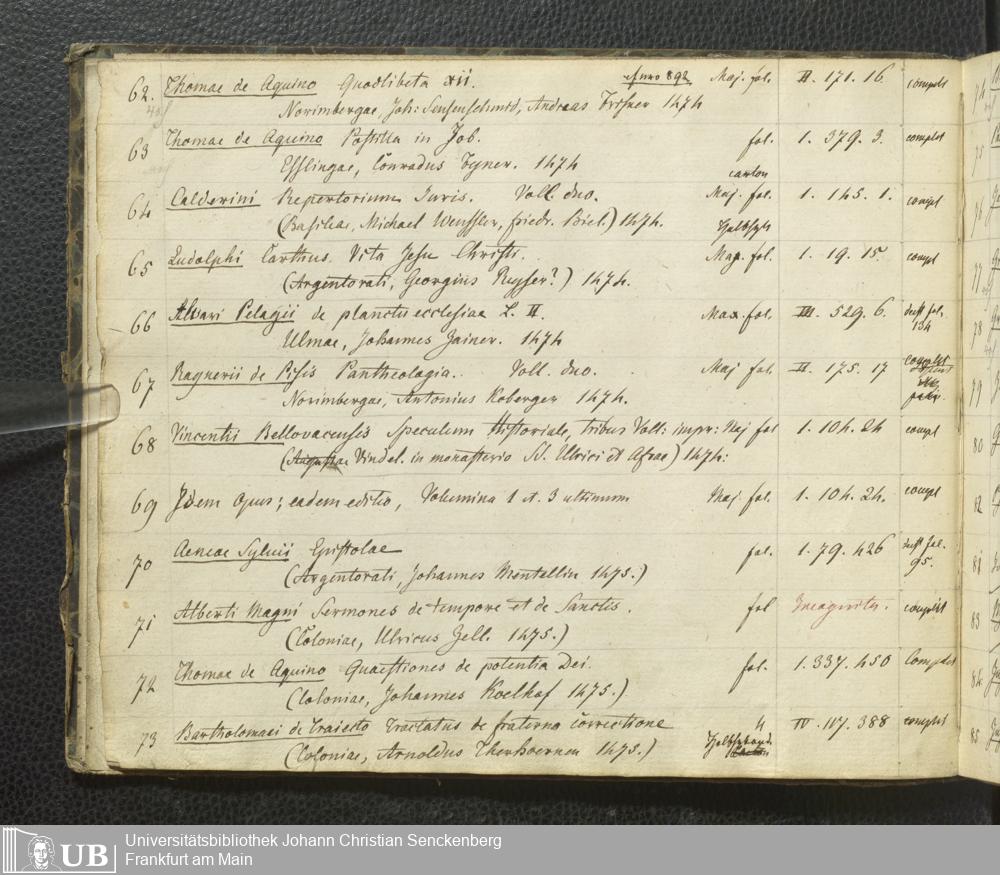 62. Thomae de Aquino Quodlibeta xii. Anno 892 Maj. fol. II. 171. 16 complet
Norimbergae, Joh: Sensenschmid, Andreas Frisner 1474
63 Thomae de Aquino Postilla in Job. fol. 1. 379. 3. complet
Esslingae, Conradus Fyner. 1474 carton
64 Calderini Repertorium Juris. Voll. duo. Maj. fol. 1. 145. 1. compl
(Basileae, Michael Wenssler, friedr. Biel.) 1474. Halbfzb
65 Ludolphi Carthus. Vita Jesu Christi. Maj. fol. 1. 19. 15. compl
(Argentorati, Georgius Reyser?) 1474.
66 Alvari Pelagii de planctu ecclesiae L. II. Max. fol. III. 529. 6. deest fol. 134
Ulmae, Johannes Zainer. 1474
67 Raynerii de Pisis Pantheologia. Voll. duo. Maj fol. II. 175. 17 complet
Norimbergae, Antonius Koberger 1474.
68 Vincentii Bellovacensis Speculum Historiale, tribus Voll: impr: Maj fol 1. 104. 24 compl
(Augustae Vindel. in monasterio SS. Ulrici et Afrae) 1474:
69 Idem opus; eadem editio, Volumina 1 et 3 ultimum Maj. fol. 1. 104. 24. compl
70 Aeneae Sylvii Epistolae fol. 1. 79. 426 deest fol. 95.
(Argentorati, Johannes Mentellin 1475.)
71 Alberti Magni Sermones de tempore et de Sanctis. fol Incognita. complet
(Coloniae, Ulricus Zell. 1475.)
72 Thomae de Aquino Quaestiones de potentia Dei. fol. 1. 337. 450 Complet
(Coloniae, Johannes Koelhof 1475.)
73 Bartholomaei de Traiecto Tractatus de fraterna correctione 4 IV. 117. 388 complet
(Coloniae, Arnoldus Therhoernen 1475.) Halbfzband
UB Universitätsbibliothek Johann Christian Senckenberg
Frankfurt am Main